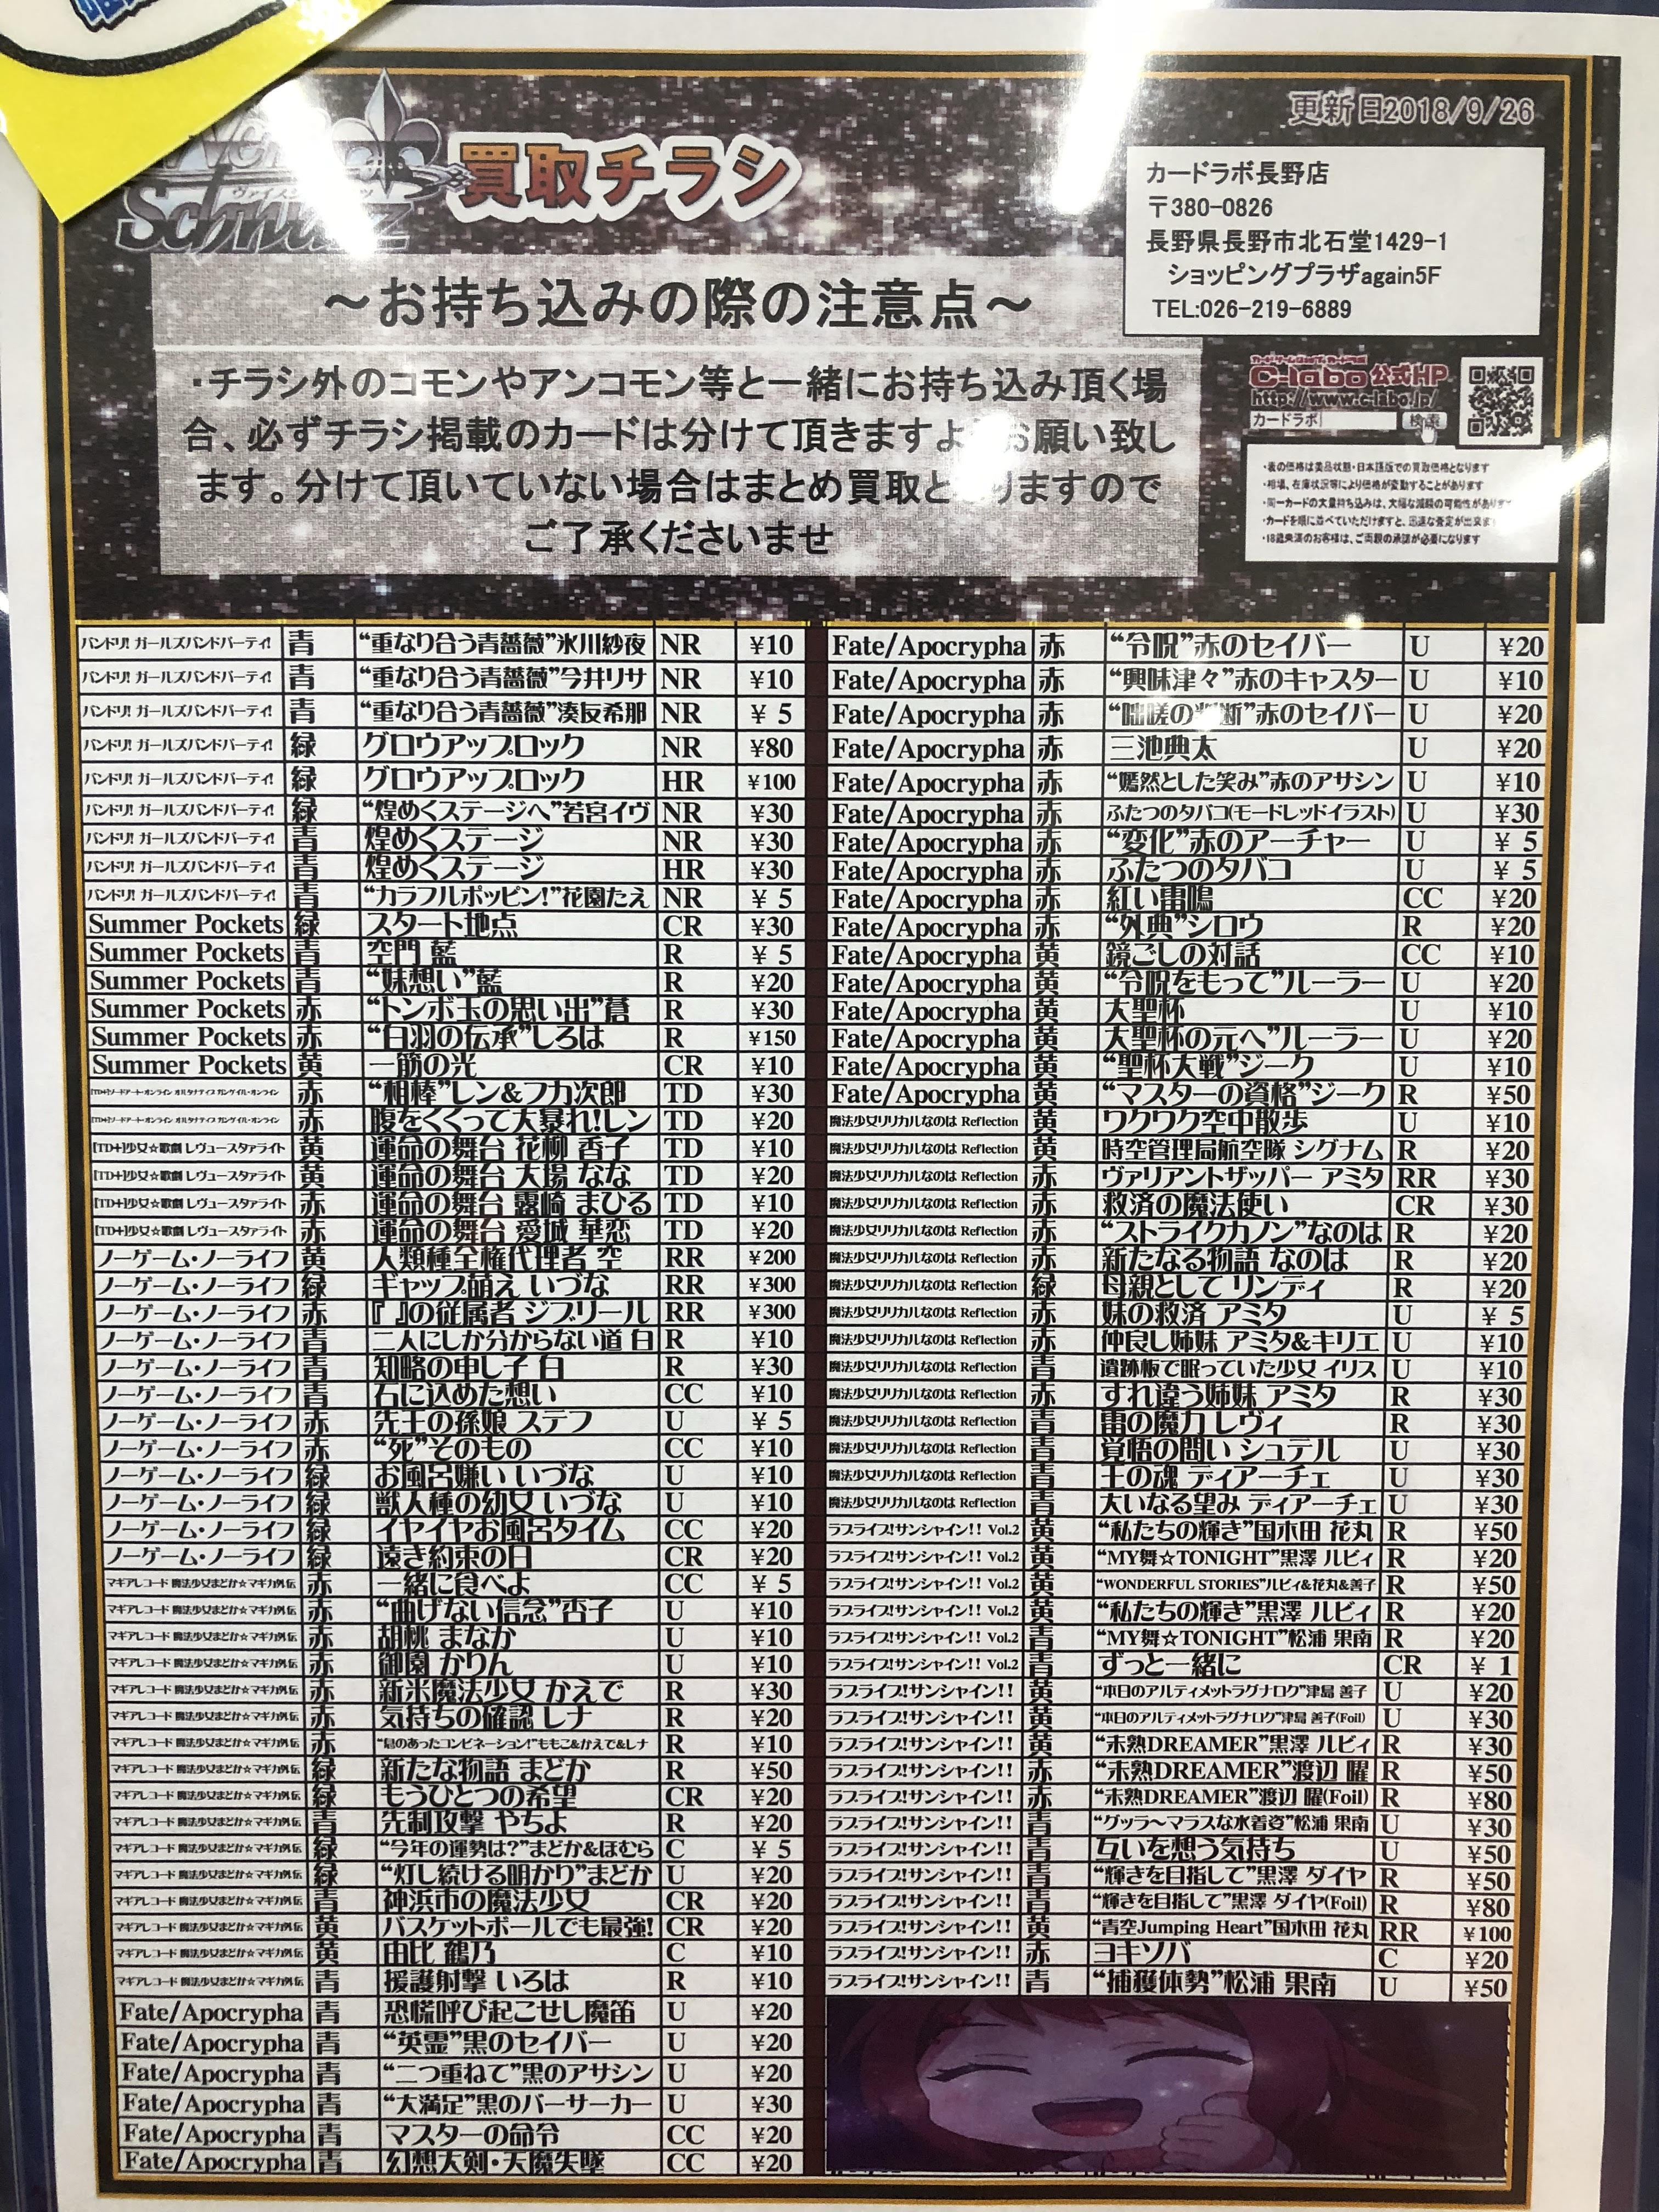 更新日2018/9/26
Schwarz
買取チラシ
カードラボ長野店
〒380-0826
長野県長野市北石堂1429-1
ショッピングプラザagain5F
TEL:026-219-6889
～お持ち込みの際の注意点～
・チラシ外のコモンやアンコモン等と一緒にお持ち込み頂く場
合、必ずチラシ掲載のカードは分けて頂きますよ お願い致し
ます。分けて頂いていない場合はまとめ買取と りますので
ご了承くださいませ
C-labo公式HP
http://www.c-labo.jp/
カードラボ 検索
・表の価格は美品状態・日本語版での買取価格となります
・相場、在庫状況等により価格が変動することがあります
・同一カードの大量持ち込みは、大幅な減額の可能性があります
・カードを順に並べていただけますと、迅速な査定が出来ま
・18歳未満のお客様は、ご両親の承諾が必要になります
バンドリ! ガールズバンドパーティ! 青 “重なり合う青薔薇”氷川紗夜 NR ¥10
バンドリ! ガールズバンドパーティ! 青 “重なり合う青薔薇”今井リサ NR ¥10
バンドリ! ガールズバンドパーティ! 青 “重なり合う青薔薇”湊友希那 NR ¥ 5
バンドリ! ガールズバンドパーティ! 緑 グロウアップロック NR ¥80
バンドリ! ガールズバンドパーティ! 緑 グロウアップロック HR ¥100
バンドリ! ガールズバンドパーティ! 緑 “煌めくステージへ”若宮イヴ NR ¥30
バンドリ! ガールズバンドパーティ! 青 煌めくステージ NR ¥30
バンドリ! ガールズバンドパーティ! 青 煌めくステージ HR ¥30
バンドリ! ガールズバンドパーティ! 青 “カラフルポッピン!”花園たえ NR ¥ 5
Summer Pockets 緑 スタート地点 CR ¥30
Summer Pockets 青 空門 藍 R ¥ 5
Summer Pockets 青 “妹想い”藍 R ¥20
Summer Pockets 赤 “トンボ玉の思い出”蒼 R ¥30
Summer Pockets 赤 “白羽の伝承”しろは R ¥150
Summer Pockets 黄 一筋の光 CR ¥10
[TD+]ソードアート・オンライン オルタナティブ ガンゲイル・オンライン 赤 “相棒”レン&フカ次郎 TD ¥30
[TD+]ソードアート・オンライン オルタナティブ ガンゲイル・オンライン 赤 腹をくくって大暴れ!レン TD ¥20
[TD+]少女☆歌劇 レヴュースタァライト 黄 運命の舞台 花柳 香子 TD ¥10
[TD+]少女☆歌劇 レヴュースタァライト 黄 運命の舞台 大場 なな TD ¥20
[TD+]少女☆歌劇 レヴュースタァライト 赤 運命の舞台 露崎 まひる TD ¥10
[TD+]少女☆歌劇 レヴュースタァライト 赤 運命の舞台 愛城 華恋 TD ¥20
ノーゲーム・ノーライフ 黄 人類種全権代理者 空 RR ¥200
ノーゲーム・ノーライフ 緑 ギャップ萌え いづな RR ¥300
ノーゲーム・ノーライフ 赤 『 』の従属者 ジブリール RR ¥300
ノーゲーム・ノーライフ 青 二人にしか分からない道 白 R ¥10
ノーゲーム・ノーライフ 青 知略の申し子 白 R ¥30
ノーゲーム・ノーライフ 青 石に込めた想い CC ¥10
ノーゲーム・ノーライフ 赤 先王の孫娘 ステフ U ¥ 5
ノーゲーム・ノーライフ 赤 “死”そのもの CC ¥10
ノーゲーム・ノーライフ 緑 お風呂嫌い いづな U ¥10
ノーゲーム・ノーライフ 緑 獣人種の幼女 いづな U ¥10
ノーゲーム・ノーライフ 緑 イヤイヤお風呂タイム CC ¥20
ノーゲーム・ノーライフ 緑 遠き約束の日 CR ¥20
マギアレコード 魔法少女まどか☆マギカ外伝 赤 一緒に食べよ CC ¥ 5
マギアレコード 魔法少女まどか☆マギカ外伝 赤 “曲げない信念”杏子 U ¥10
マギアレコード 魔法少女まどか☆マギカ外伝 赤 胡桃 まなか U ¥10
マギアレコード 魔法少女まどか☆マギカ外伝 赤 御園 かりん U ¥10
マギアレコード 魔法少女まどか☆マギカ外伝 赤 新米魔法少女 かえで R ¥30
マギアレコード 魔法少女まどか☆マギカ外伝 赤 気持ちの確認 レナ R ¥20
マギアレコード 魔法少女まどか☆マギカ外伝 赤 “息のあったコンビネーション!”ももこ&かえで&レナ R ¥10
マギアレコード 魔法少女まどか☆マギカ外伝 緑 新たな物語 まどか R ¥50
マギアレコード 魔法少女まどか☆マギカ外伝 緑 もうひとつの希望 CR ¥20
マギアレコード 魔法少女まどか☆マギカ外伝 青 先制攻撃 やちよ R ¥20
マギアレコード 魔法少女まどか☆マギカ外伝 緑 “今年の運勢は?”まどか&ほむら C ¥ 5
マギアレコード 魔法少女まどか☆マギカ外伝 緑 “灯し続ける明かり”まどか U ¥20
マギアレコード 魔法少女まどか☆マギカ外伝 青 神浜市の魔法少女 CR ¥20
マギアレコード 魔法少女まどか☆マギカ外伝 黄 バスケットボールでも最強! CR ¥20
マギアレコード 魔法少女まどか☆マギカ外伝 黄 由比 鶴乃 C ¥10
マギアレコード 魔法少女まどか☆マギカ外伝 青 援護射撃 いろは R ¥10
Fate/Apocrypha 青 恐慌呼び起こせし魔笛 U ¥20
Fate/Apocrypha 青 “英霊”黒のセイバー U ¥20
Fate/Apocrypha 青 “二つ重ねて”黒のアサシン U ¥20
Fate/Apocrypha 青 “大満足”黒のバーサーカー U ¥30
Fate/Apocrypha 青 マスターの命令 CC ¥20
Fate/Apocrypha 青 幻想大剣・天魔失墜 CC ¥20
Fate/Apocrypha 赤 “令呪”赤のセイバー U ¥20
Fate/Apocrypha 赤 “興味津々”赤のキャスター U ¥10
Fate/Apocrypha 赤 “咄嗟の判断”赤のセイバー U ¥20
Fate/Apocrypha 赤 三池典太 U ¥20
Fate/Apocrypha 赤 “嫣然とした笑み”赤のアサシン U ¥10
Fate/Apocrypha 赤 ふたつのタバコ(モードレッドイラスト) U ¥30
Fate/Apocrypha 赤 “変化”赤のアーチャー U ¥ 5
Fate/Apocrypha 赤 ふたつのタバコ U ¥ 5
Fate/Apocrypha 赤 紅い雷鳴 CC ¥20
Fate/Apocrypha 赤 “外典”シロウ R ¥20
Fate/Apocrypha 黄 鏡ごしの対話 CC ¥10
Fate/Apocrypha 黄 “令呪をもって”ルーラー U ¥20
Fate/Apocrypha 黄 大聖杯 U ¥10
Fate/Apocrypha 黄 大聖杯の元へ”ルーラー U ¥20
Fate/Apocrypha 黄 “聖杯大戦”ジーク U ¥10
Fate/Apocrypha 黄 “マスターの資格”ジーク R ¥50
魔法少女リリカルなのは Reflection 黄 ワクワク空中散歩 U ¥10
魔法少女リリカルなのは Reflection 黄 時空管理局航空隊 シグナム R ¥20
魔法少女リリカルなのは Reflection 赤 ヴァリアントザッパー アミタ RR ¥30
魔法少女リリカルなのは Reflection 赤 救済の魔法使い CR ¥30
魔法少女リリカルなのは Reflection 赤 “ストライクカノン”なのは R ¥20
魔法少女リリカルなのは Reflection 赤 新たなる物語 なのは R ¥20
魔法少女リリカルなのは Reflection 緑 母親として リンディ R ¥20
魔法少女リリカルなのは Reflection 赤 妹の救済 アミタ U ¥ 5
魔法少女リリカルなのは Reflection 赤 仲良し姉妹 アミタ&キリエ U ¥10
魔法少女リリカルなのは Reflection 青 遺跡板で眠っていた少女 イリス U ¥10
魔法少女リリカルなのは Reflection 赤 すれ違う姉妹 アミタ R ¥30
魔法少女リリカルなのは Reflection 青 雷の魔力 レヴィ R ¥30
魔法少女リリカルなのは Reflection 青 覚悟の問い シュテル U ¥30
魔法少女リリカルなのは Reflection 青 王の魂 ディアーチェ U ¥30
魔法少女リリカルなのは Reflection 青 大いなる望み ディアーチェ U ¥30
ラブライブ!サンシャイン!! Vol.2 黄 “私たちの輝き”国木田 花丸 R ¥50
ラブライブ!サンシャイン!! Vol.2 黄 “MY舞☆TONIGHT”黒澤 ルビィ R ¥20
ラブライブ!サンシャイン!! Vol.2 黄 “WONDERFUL STORIES”ルビィ&花丸&善子 R ¥50
ラブライブ!サンシャイン!! Vol.2 黄 “私たちの輝き”黒澤 ルビィ R ¥20
ラブライブ!サンシャイン!! Vol.2 青 “MY舞☆TONIGHT”松浦 果南 R ¥20
ラブライブ!サンシャイン!! Vol.2 青 ずっと一緒に CR ¥ 1
ラブライブ!サンシャイン!! 黄 “本日のアルティメットラグナロク”津島 善子 U ¥20
ラブライブ!サンシャイン!! 黄 “本日のアルティメットラグナロク”津島 善子(Foil) U ¥30
ラブライブ!サンシャイン!! 黄 “未熟DREAMER”黒澤 ルビィ R ¥30
ラブライブ!サンシャイン!! 赤 “未熟DREAMER”渡辺 曜 R ¥50
ラブライブ!サンシャイン!! 赤 “未熟DREAMER”渡辺 曜(Foil) R ¥80
ラブライブ!サンシャイン!! 青 “グッラ～マラスな水着姿”松浦 果南 U ¥30
ラブライブ!サンシャイン!! 青 互いを想う気持ち U ¥50
ラブライブ!サンシャイン!! 青 “輝きを目指して”黒澤 ダイヤ R ¥50
ラブライブ!サンシャイン!! 青 “輝きを目指して”黒澤 ダイヤ(Foil) R ¥80
ラブライブ!サンシャイン!! 黄 “青空Jumping Heart”国木田 花丸 RR ¥100
ラブライブ!サンシャイン!! 赤 ヨキソバ C ¥20
ラブライブ!サンシャイン!! 青 “捕獲体勢”松浦 果南 U ¥50